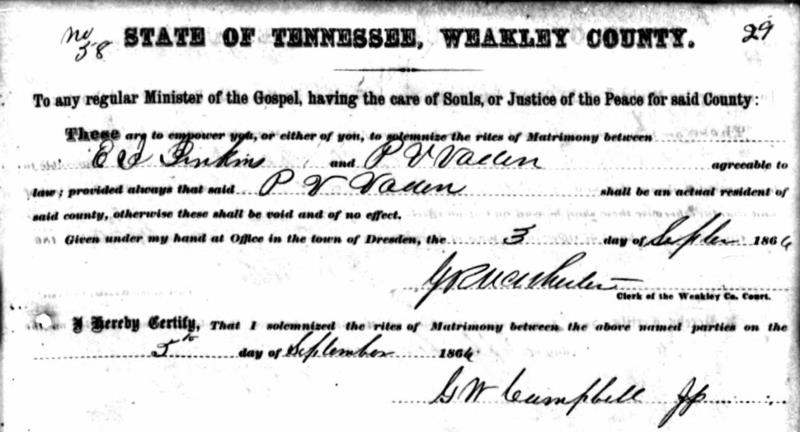 No 58 STATE OF TENNESSEE, WEAKLEY COUNTY. 29
To any regular Minister of the Gospel, having the care of Souls, or Justice of the Peace for said County:
These are to empower you, or either of you, to solemnize the rites of Matrimony between
E J Jenkins and P V Vaden agreeable to
law; provided always that said P V Vaden shall be an actual resident of
said county, otherwise these shall be void and of no effect.
Given under my hand at Office in the town of Dresden, the 3 day of Septer 1866
Clerk of the Weakley Co. Court.
I Hereby Certify, That I solemnized the rites of Matrimony between the above named parties on the
5th day of September 1866
G W Campbell JP